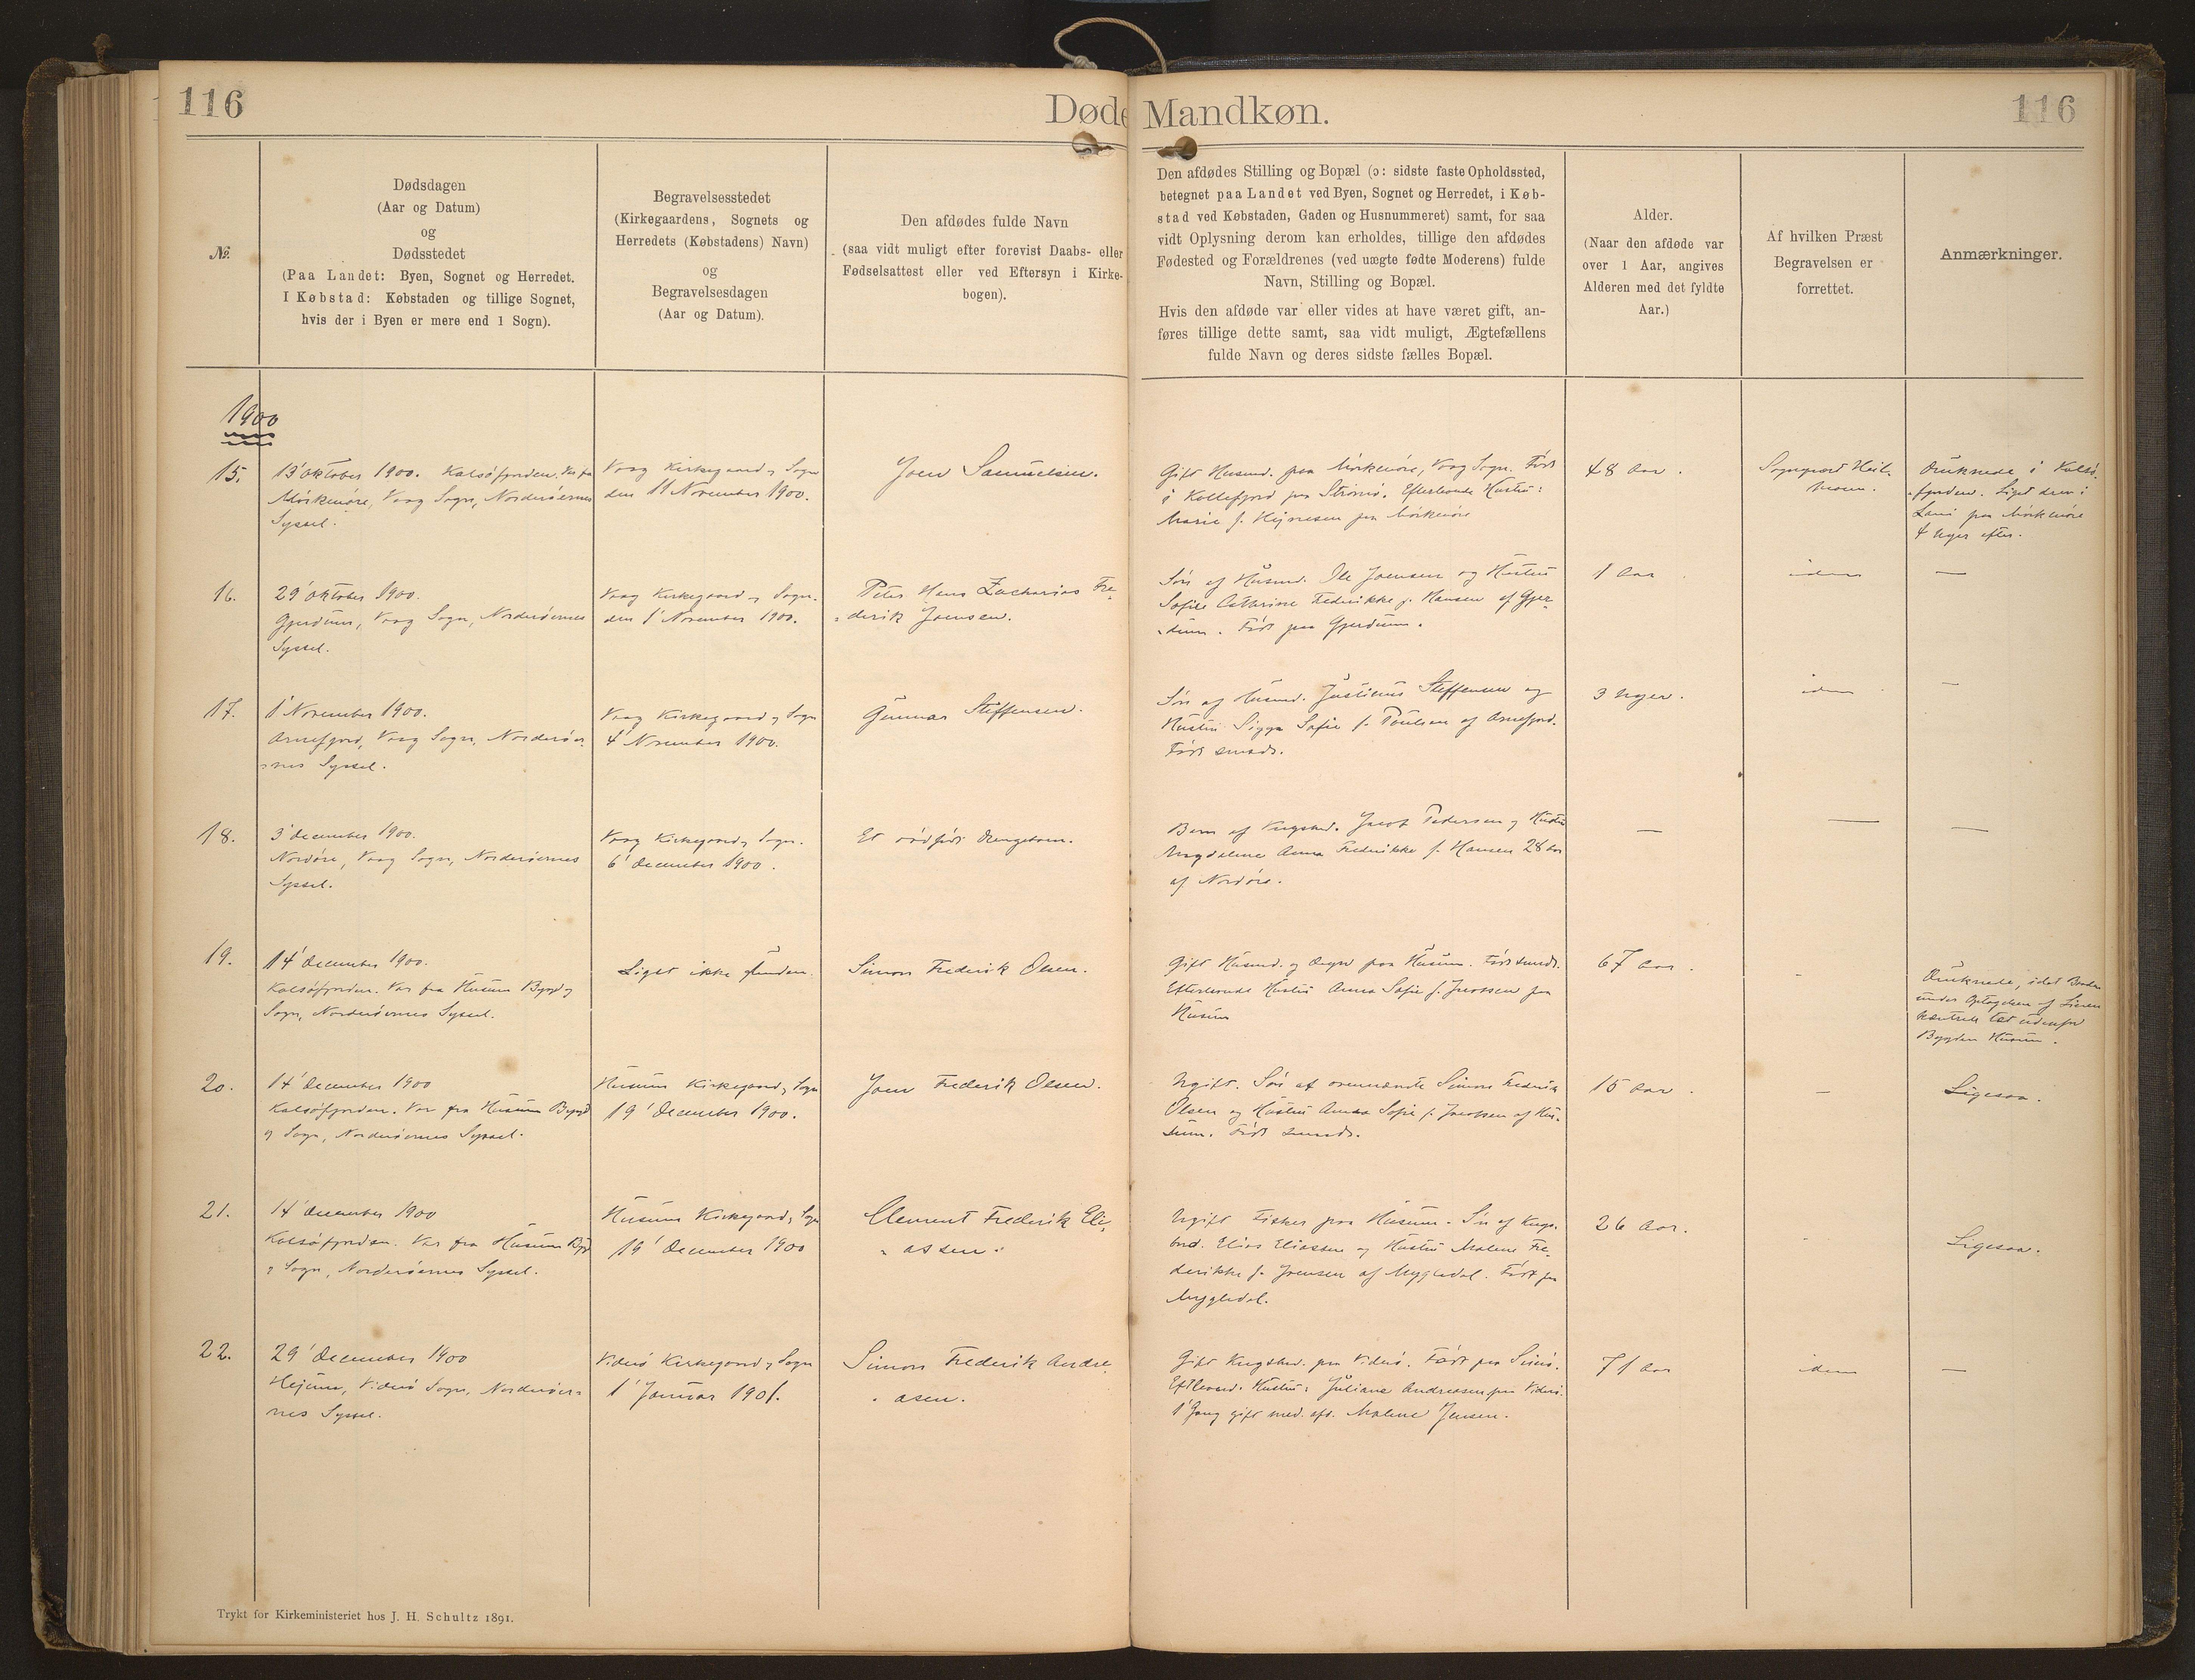 116
Døde Mandkøn.
116
№.
Dødsdagen
(Aar og Datum)
og
Dødsstedet
(Paa Landet: Byen, Sognet og Herredet.
I Købstad: Købstaden og tillige Sognet,
hvis der i Byen er mere end 1 Sogn).
Begravelsesstedet
(Kirkegaardens, Sognets og
Herredets (Købstadens) Navn)
og
Begravelsesdagen
(Aar og Datum).
Den afdødes fulde Navn
(saa vidt muligt efter forevist Daabs- eller
Fødselsattest eller ved Eftersyn i Kirke-
bogen).
Den afdødes Stilling og Bopæl (ɔ: sidste faste Opholdssted,
betegnet paa Landet ved Byen, Sognet og Herredet, i Køb-
stad ved Købstaden, Gaden og Husnummeret) samt, for saa
vidt Oplysning derom kan erholdes, tillige den afdødes
Fødested og Forældrenes (ved uægte fødte Moderens) fulde
Navn, Stilling og Bopæl.
Hvis den afdøde var eller vides at have været gift, an-
føres tillige dette samt, saa vidt muligt, Ægtefællens
fulde Navn og deres sidste fælles Bopæl.
Alder.
(Naar den afdøde var
over 1 Aar, angives
Alderen med det fyldte
Aar.)
Af hvilken Præst
Begravelsen er
forrettet.
Anmærkninger.
1900
15.
13' Oktober 1900. Kalsøfjorden. Var fra
Mörkenöre, Vaag Sogn, Norderöernes
Syssel.
Vaag Kirkegaard og Sogn
den 11 November 1900.
Joen Samuelsen.
Gift Husmd. paa Mörkenöre, Vaag Sogn. Født
i Kollefjord paa Strömö. Efterlevende Hustru:
Marie f. Hejnesen paa Mörkenöre
48 Aar.
Sognepræst Heil-
mann.
Druknede i Kalsö-
fjorden. Liget drev i
Land paa Mörkenöre
4 Uger efter.
16.
29' Oktober 1900.
Gjerdum, Vaag Sogn, Norderöernes
Syssel.
Vaag Kirkegaard og Sogn.
den 1' November 1900.
Peter Hans Zacharias Fre-
derik Joensen.
Søn af Husmd. Ole Joensen og Hustru
Sofie Cathrine Frederikke f. Hansen af Gjer-
dum. Født paa Gjerdum.
1 Aar
idem
—
17.
1' November 1900.
Arnefjord, Vaag Sogn, Norderöer-
nes Syssel.
Vaag Kirkegaard og Sogn
4' November 1900.
Gunnar Steffensen.
Søn af Husmd. Justinus Steffensen og
Hustru Sigga Sofie f. Poulsen af Arnefjord.
Født smstds.
3 Uger.
idem
—
18.
3' december 1900.
Nordöre, Vaag Sogn, Norderöernes
Syssel.
Vaag Kirkegaard og Sogn.
6' december 1900.
Et dødfødt Drengebarn.
Barn af Kngsbd. Jacob Pedersen og Hustru
Magdalene Anna Frederikke f. Hansen 28 Aar
af Nordöre.
—
—
—
19.
14' december 1900.
Kalsöfjorden. Var fra Husum Bygd og
Sogn, Norderöernes Syssel.
Liget ikke funden.
Simon Frederik Olsen.
Gift Husmd. og paa Husum. Født smstds.
Efterlevende Hustru Anna Sofie f. Jacobsen paa
Husum
67 Aar.
-
Druknede, idet Baaden
under Optagelsen af Linen
kæntrede tæt udenfor
Bygden Husum.
20.
14' december 1900
Kalsöfjorden. Var fra Husum Bygd
og Sogn, Norderöernes Syssel.
Husum Kirkegaard og Sogn
19' december 1900.
Joen Frederik Olsen.
Ugift. Søn af ovennævnte Simon Frederik
Olsen og Hustru Anna Sofie f. Jacobsen af Hu-
sum. Født smstds.
15 Aar.
—
Ligesaa.
21.
14' december 1900
Kalsöfjorden. Var fra Husum Bygd
og Sogn, Norderöernes Syssel.
Husum Kirkegaard og Sogn
19' december 1900
Clement Frederik Eli-
assen.
Ugift Fisker paa Husum. Søn af Kngs-
bnd. Elias Eliassen og Hustru Malene Fre-
derikke f. Joensen af Mygledal. Født paa
Mygledal.
26 Aar.
-
Ligesaa.
22.
29' december 1900
Hejum, Viderö Sogn, Norderöer-
nes Syssel.
Viderö Kirkegaard og Sogn
1' Januar 1901.
Simon Frederik Andre-
asen.
Gift Kngsbd. paa Viderö. Født paa Svinö.
Eftlevend. Hustru: Juliane Andreasen paa Viderö.
1' Gang gift med afd. Malene Jensen.
71 Aar
idem
—
Trykt for Kirkeministeriet hos J. H. Schultz 1891.